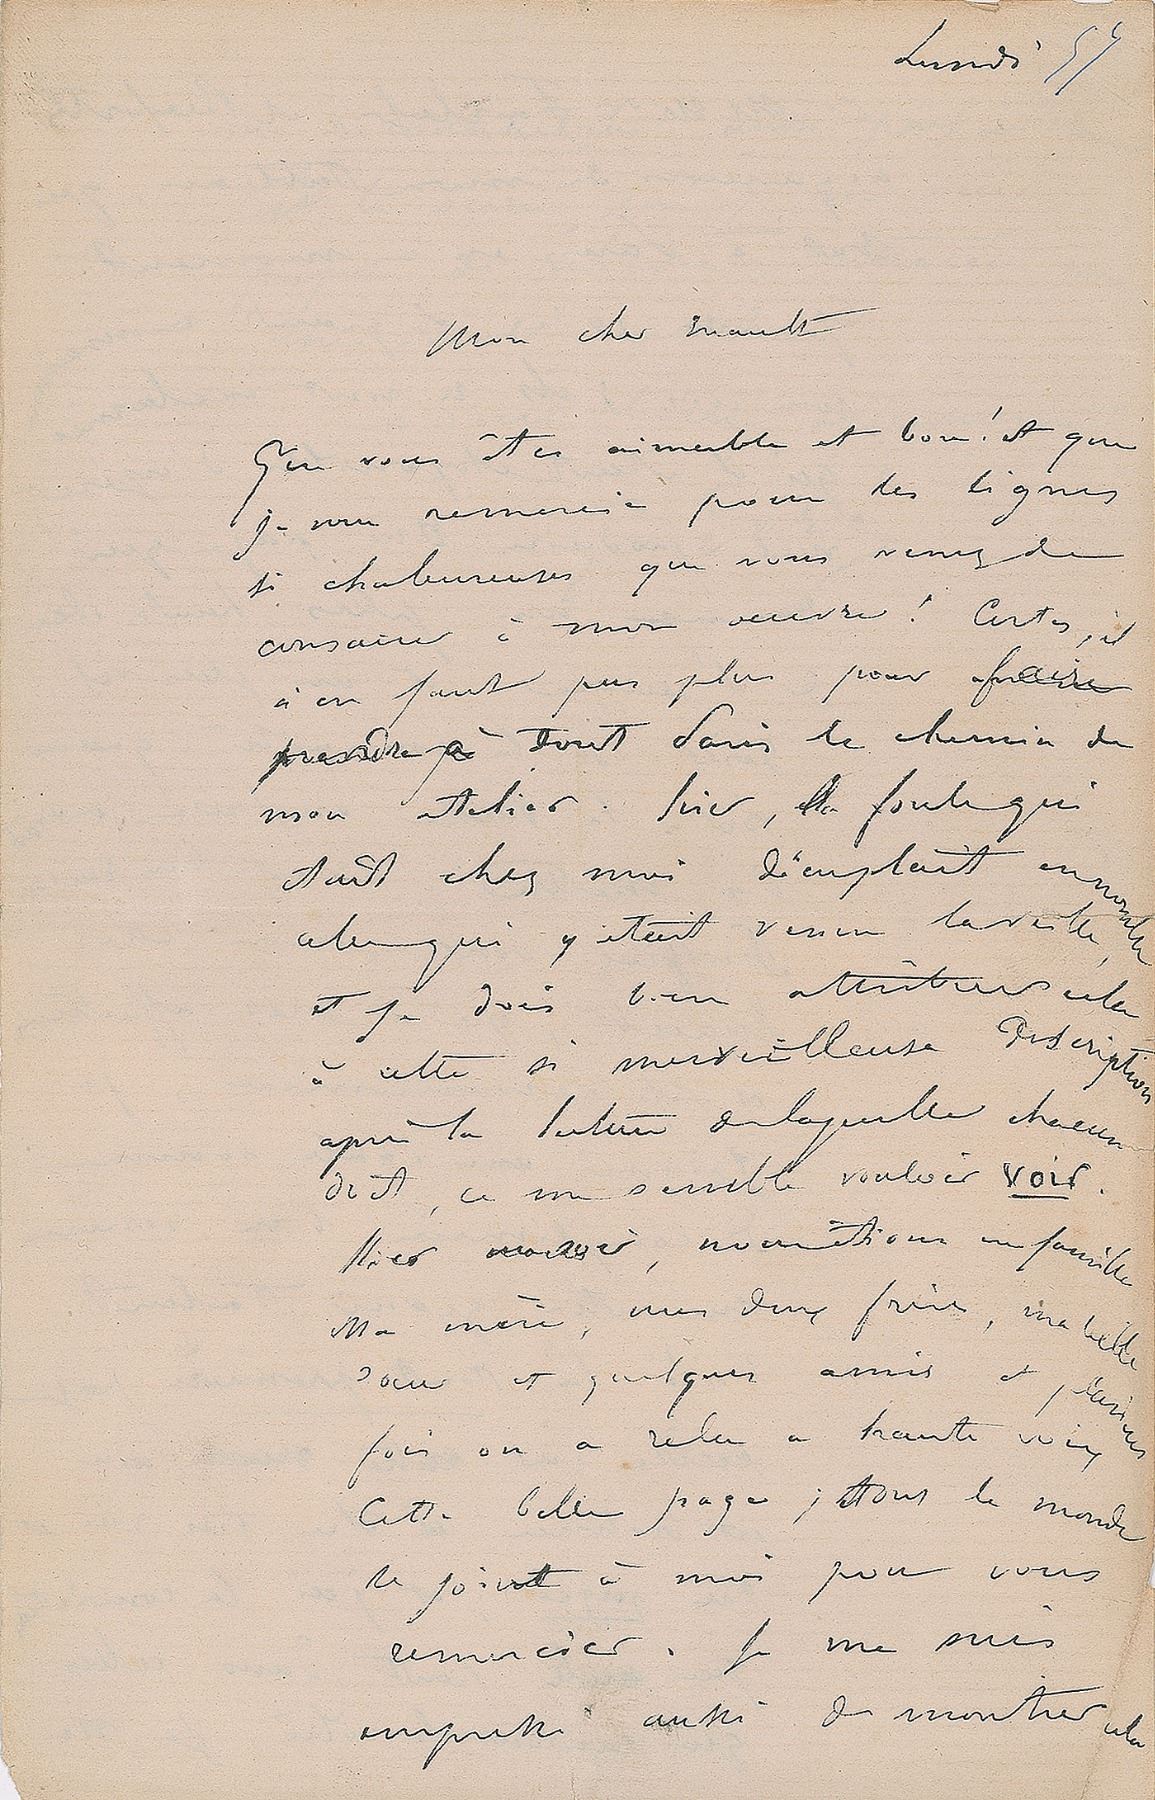 Lundi 54
Mon cher Enault
Que vous êtes aimable et bon ! et que
je vous remercie pour les lignes
si chaleureuses que vous venez de
consacrer à mon oeuvre ! Certes, il
n'en faut pas plus pour faire
prendre à tout Paris le chemin de
mon atelier. hier, la foule qui
était chez moi décuplait en nombre
celle qui y était venue la veille,
et je dois bien attribuer cela
à cette si merveilleuse Description
après la lecture de laquelle chacun
doit, ce me semble vouloir voir.
Hier soir, nous étions en famille
Ma mère, mes deux frères, ma belle
soeur et quelques amis et plusieurs
fois on a relu a haute voix
Cette belle page ; tout le monde
se joint à moi pour vous
remercier. Je me suis
empressé aussi de montrer cela